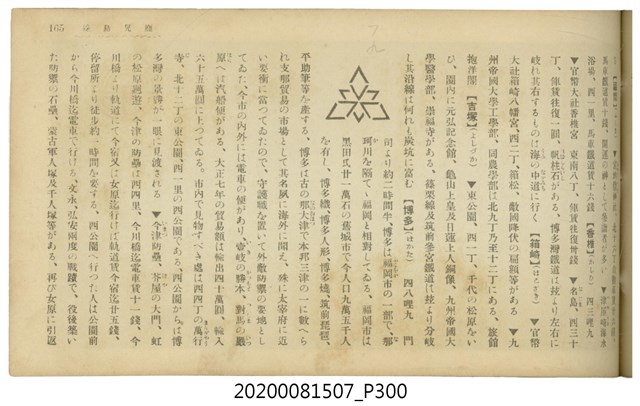 鹿兒島線　165
▼官幣大社香椎宮　東南八丁、俥賃往復卅錢　▼名島、四三十
丁、俥賃往復一圓、帆柱石がある、博多灣鐵道は左右に
岐れ其右するものは海の中道に行く　【箱崎】(はこざき)　▼官幣
大社筥崎八幡宮、西二丁、箱松、敵國降伏の扁額等がある　▼九
州帝國大學工學部、同農學部は北九丁乃至十二丁にある、旅館
抱洋閣　【吉塚】(よしづか)　▼東公園、西一丁、千代の松原をい
ひ、園内に元弘記念館、龜山上皇及日蓮上人銅像、九州帝國大
學醫學部、崇福寺がある、篠栗線及筑前參宮鐵道は玆より分岐
し其沿線は何れも炭坑に富む　【博多】(はかた)　四八哩九　門
司より約二時間半、博多は福岡市の一部で、那
珂川を隔てゝ福岡と相對してゐる、福岡市は
黒田氏廿一萬石の舊城市で今人口九萬五千人
を有し、博多織、博多人形、博多燒、筑前琵琶、
平助筆等を產する、博多は古の那大津で本邦三津の一に數へら
れ支那貿易の市場として其名夙に海外に聞え、殊に太宰府に近
い要衝に當つてゐたので、守護職を置いて外敵防禦の要地とし
てゐた、今市の内外には電車の便があり、壹岐の勝本、對馬の嚴
原へは汽船便がある、大正七年の貿易額は輸出四十萬圓、輸入
六十五萬圓に上つてゐる。市内で見物すべき處は西四丁の萬行
寺、北十二丁の東公園、西一里の西公園である、西公園からは博
多灣の景勝が一眼に見渡される　▼今津防壘、芥屋の大門、虹
の松原廻遊、今津の防壘は西四里、今川橋迄電車賃十一錢、今
川橋より軌道にて今宿又は女原迄行けば軌道賃今宿迄廿五錢、
停留所より徒歩約一時間を要する、西公園へ行つた人は公園前
から今川橋迄電車で行ける、文永、弘安兩度の戰蹟で、役後築い
た防壘の石壘、蒙古軍人塚及千人塚等がある、再び女原に引返
20200081507_P300